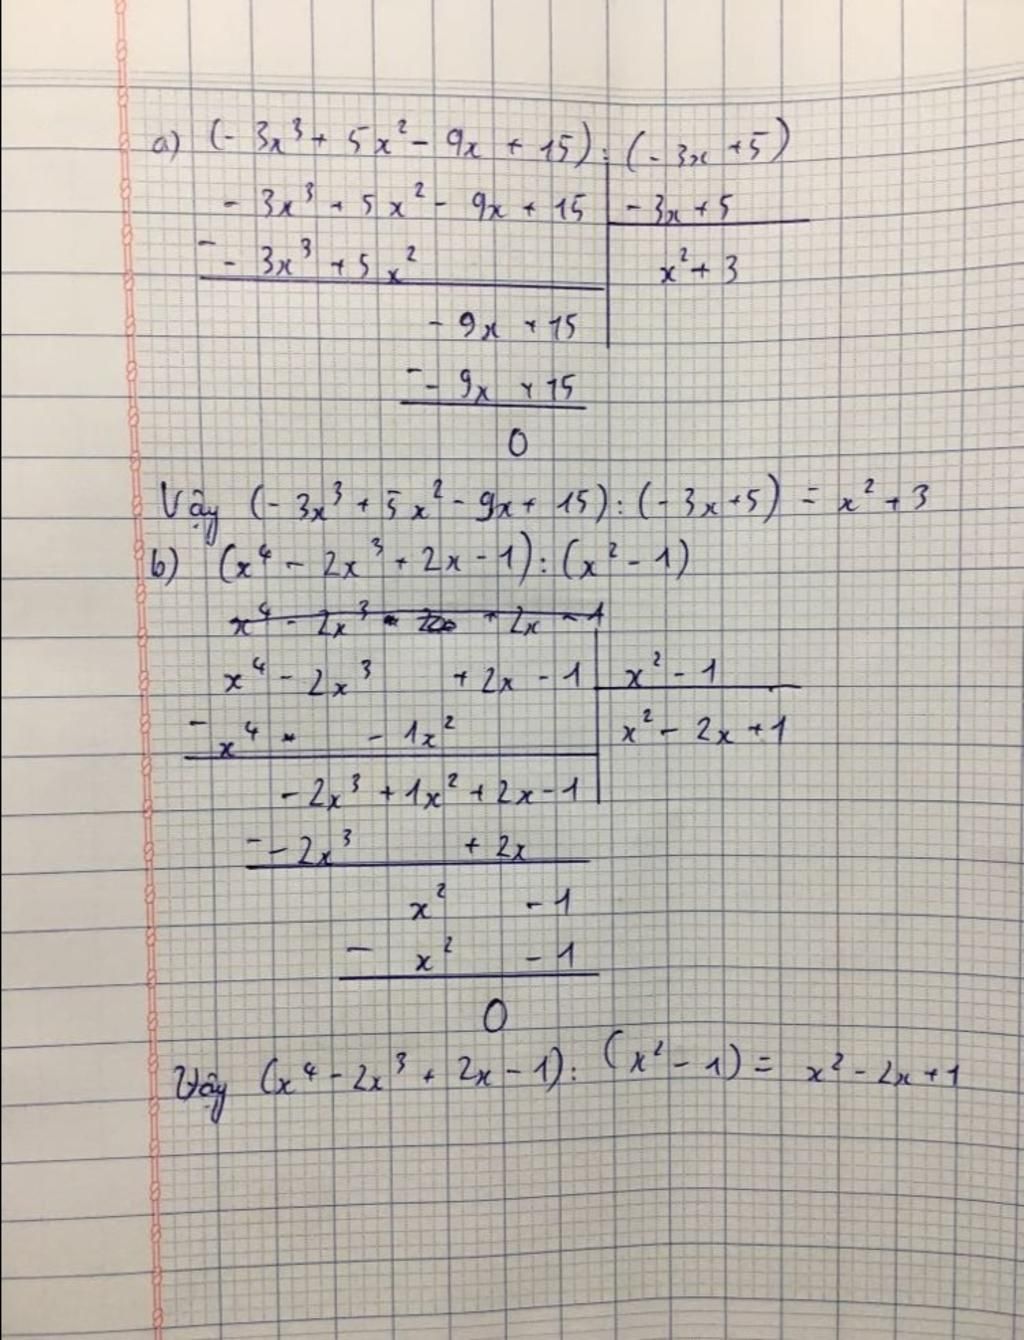 a) (- 3x³ + 5x² - 9x + 15) : (- 3x + 5)
- 3x³ + 5x² - 9x + 15 | - 3x + 5
- - 3x³ + 5x² | x² + 3
- 9x + 15
- - 9x + 15
0
Vậy (- 3x³ + 5x² - 9x + 15) : (- 3x + 5) = x² + 3
b) (x⁴ - 2x³ + 2x - 1) : (x² - 1)
x⁴ - 2x³ + 2x - 1
x⁴ - 2x³ + 2x - 1 | x² - 1
- x⁴ - 1x² | x² - 2x + 1
- 2x³ + 1x² + 2x - 1
- - 2x³ + 2x
x² - 1
- x² - 1
0
Vậy (x⁴ - 2x³ + 2x - 1) : (x² - 1) = x² - 2x + 1